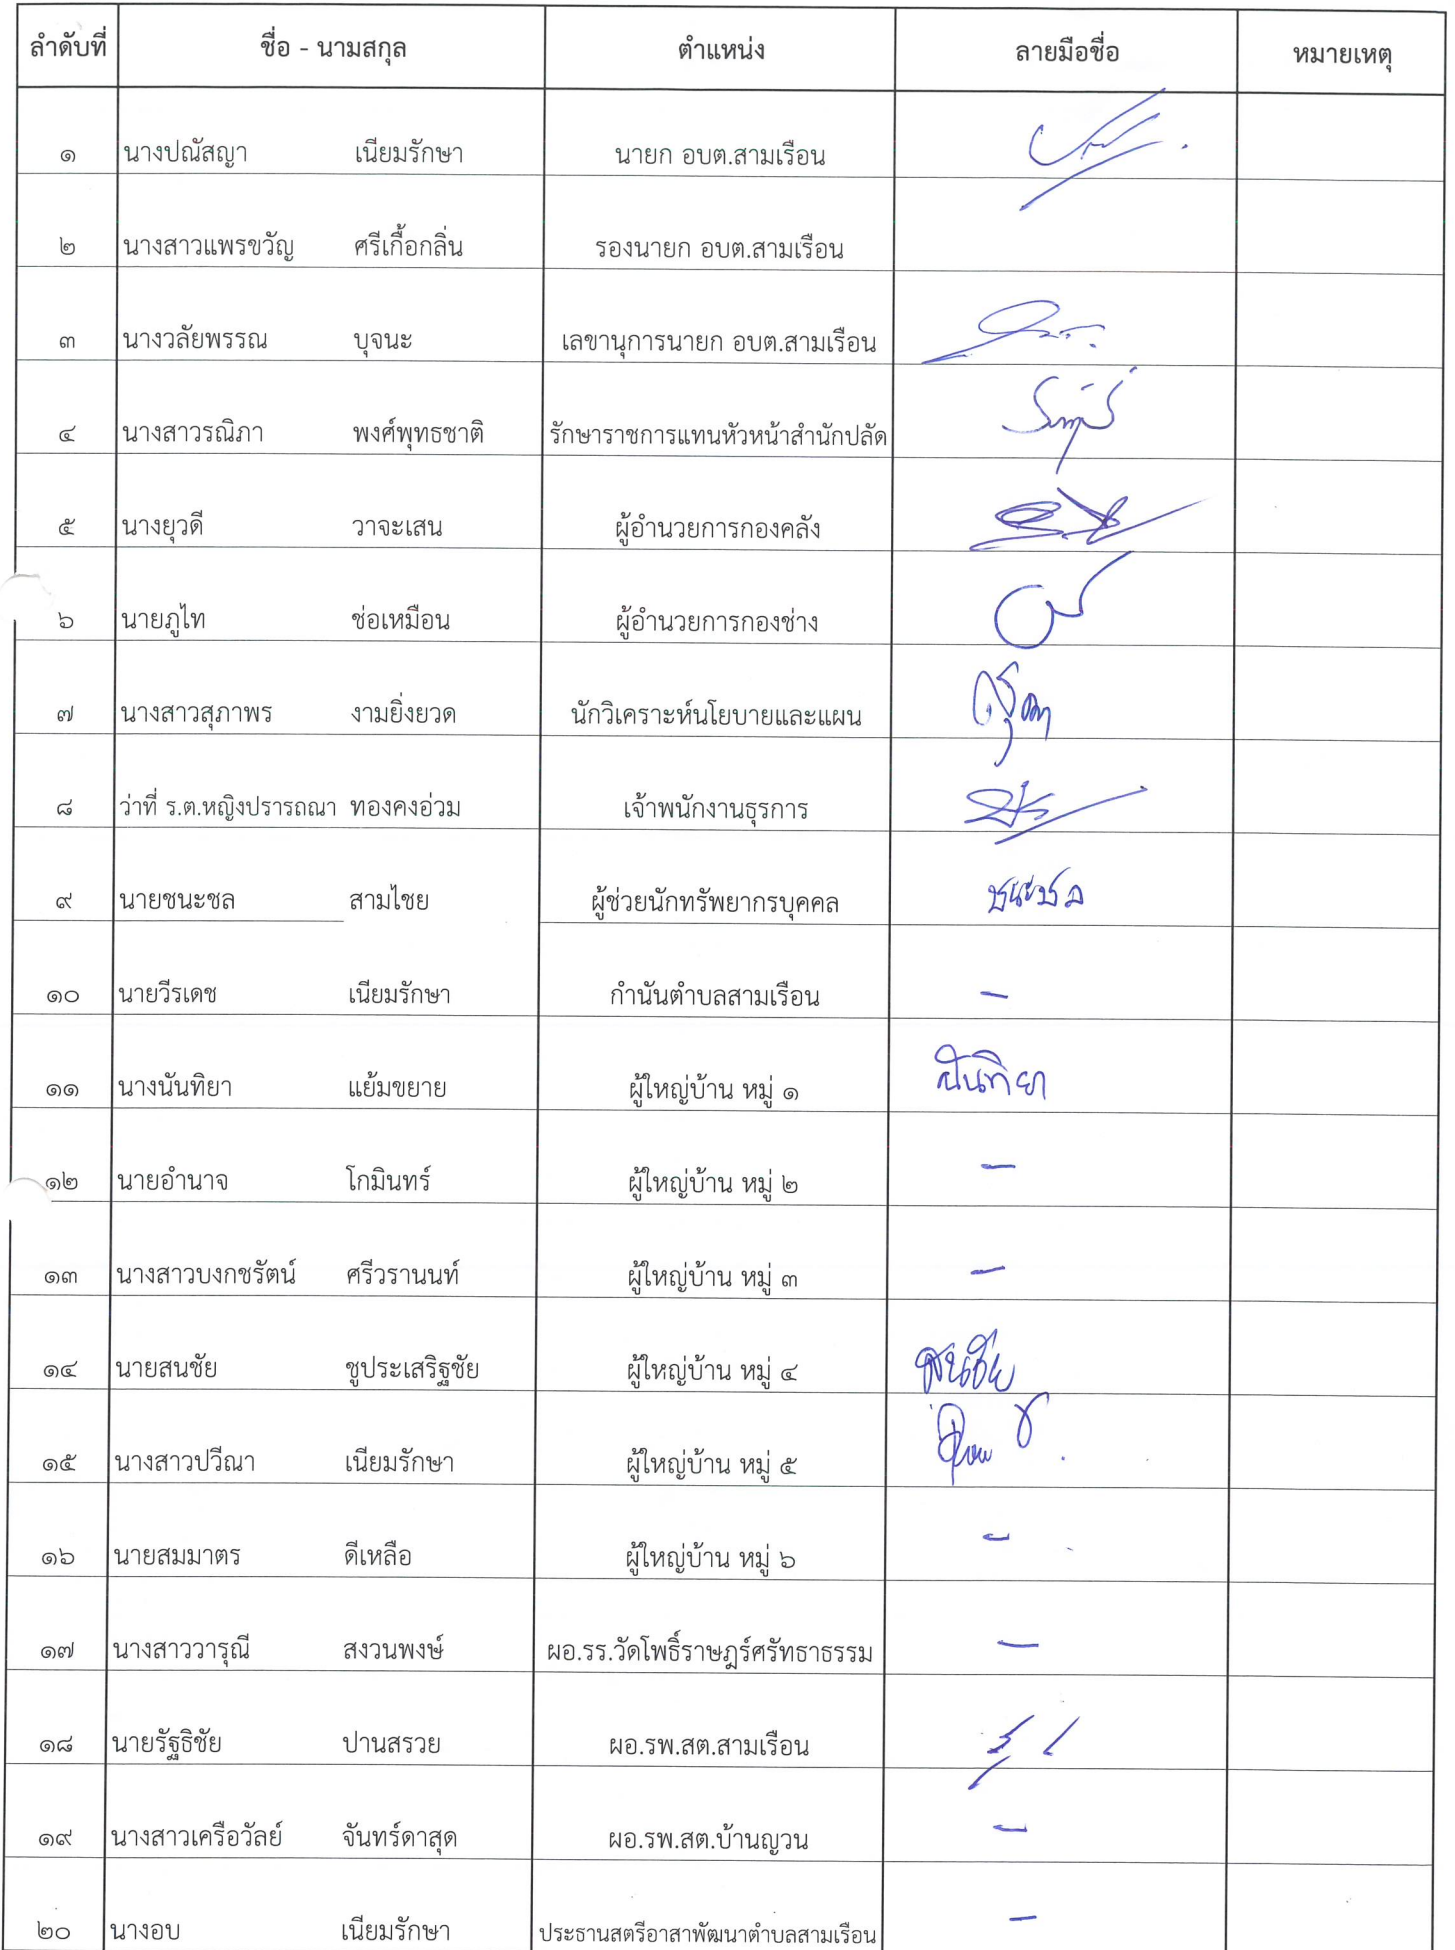 ลำดับที่ ชื่อ - นามสกุล ตำแหน่ง ลายมือชื่อ หมายเหตุ
๑ นางปณัสญา เนียมรักษา นายก อบต.สามเรือน
๒ นางสาวแพรขวัญ ศรีเกื้อกลิ่น รองนายก อบต.สามเรือน
๓ นางวลัยพรรณ บุจนะ เลขานุการนายก อบต.สามเรือน
๔ นางสาวรณิภา พงศ์พุทธชาติ รักษาราชการแทนหัวหน้าสำนักปลัด
๕ นางยุวดี วาจะเสน ผู้อำนวยการกองคลัง
๖ นายภูไท ช่อเหมือน ผู้อำนวยการกองช่าง
๗ นางสาวสุภาพร งามยิ่งยวด นักวิเคราะห์นโยบายและแผน
๘ ว่าที่ ร.ต.หญิงปรารถณา ทองคงอ่วม เจ้าพนักงานธุรการ
๙ นายชนะชล สามไชย ผู้ช่วยนักทรัพยากรบุคคล ชนะชล
๑๐ นายวีรเดช เนียมรักษา กำนันตำบลสามเรือน -
๑๑ นางนันทิยา แย้มขยาย ผู้ใหญ่บ้าน หมู่ ๑ นันทิยา
๑๒ นายอำนาจ โกมินทร์ ผู้ใหญ่บ้าน หมู่ ๒ -
๑๓ นางสาวบงกชรัตน์ ศรีวรานนท์ ผู้ใหญ่บ้าน หมู่ ๓ -
๑๔ นายสนชัย ชูประเสริฐชัย ผู้ใหญ่บ้าน หมู่ ๔ สนชัย
๑๕ นางสาวปวีณา เนียมรักษา ผู้ใหญ่บ้าน หมู่ ๕
๑๖ นายสมมาตร ดีเหลือ ผู้ใหญ่บ้าน หมู่ ๖ -
๑๗ นางสาววารุณี สงวนพงษ์ ผอ.รร.วัดโพธิ์ราษฎร์ศรัทธาธรรม -
๑๘ นายรัฐธิชัย ปานสรวย ผอ.รพ.สต.สามเรือน
๑๙ นางสาวเครือวัลย์ จันทร์ดาสุด ผอ.รพ.สต.บ้านญวน -
๒๐ นางอบ เนียมรักษา ประธานสตรีอาสาพัฒนาตำบลสามเรือน -